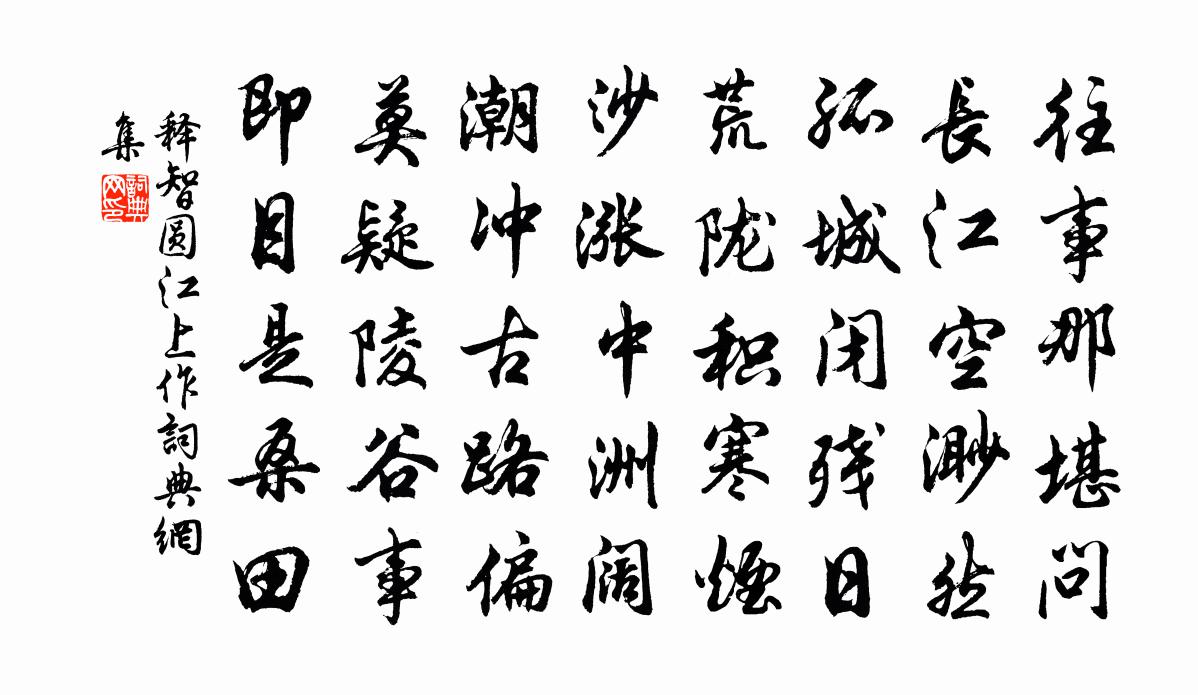 往事那堪问
長江空渺然
孤城闭残日
荒陇积寒煙
沙涨中洲阔
潮冲古路偏
莫疑陵谷事
即目是桑田
释智圆江上作詞典網
集
詞典
网印